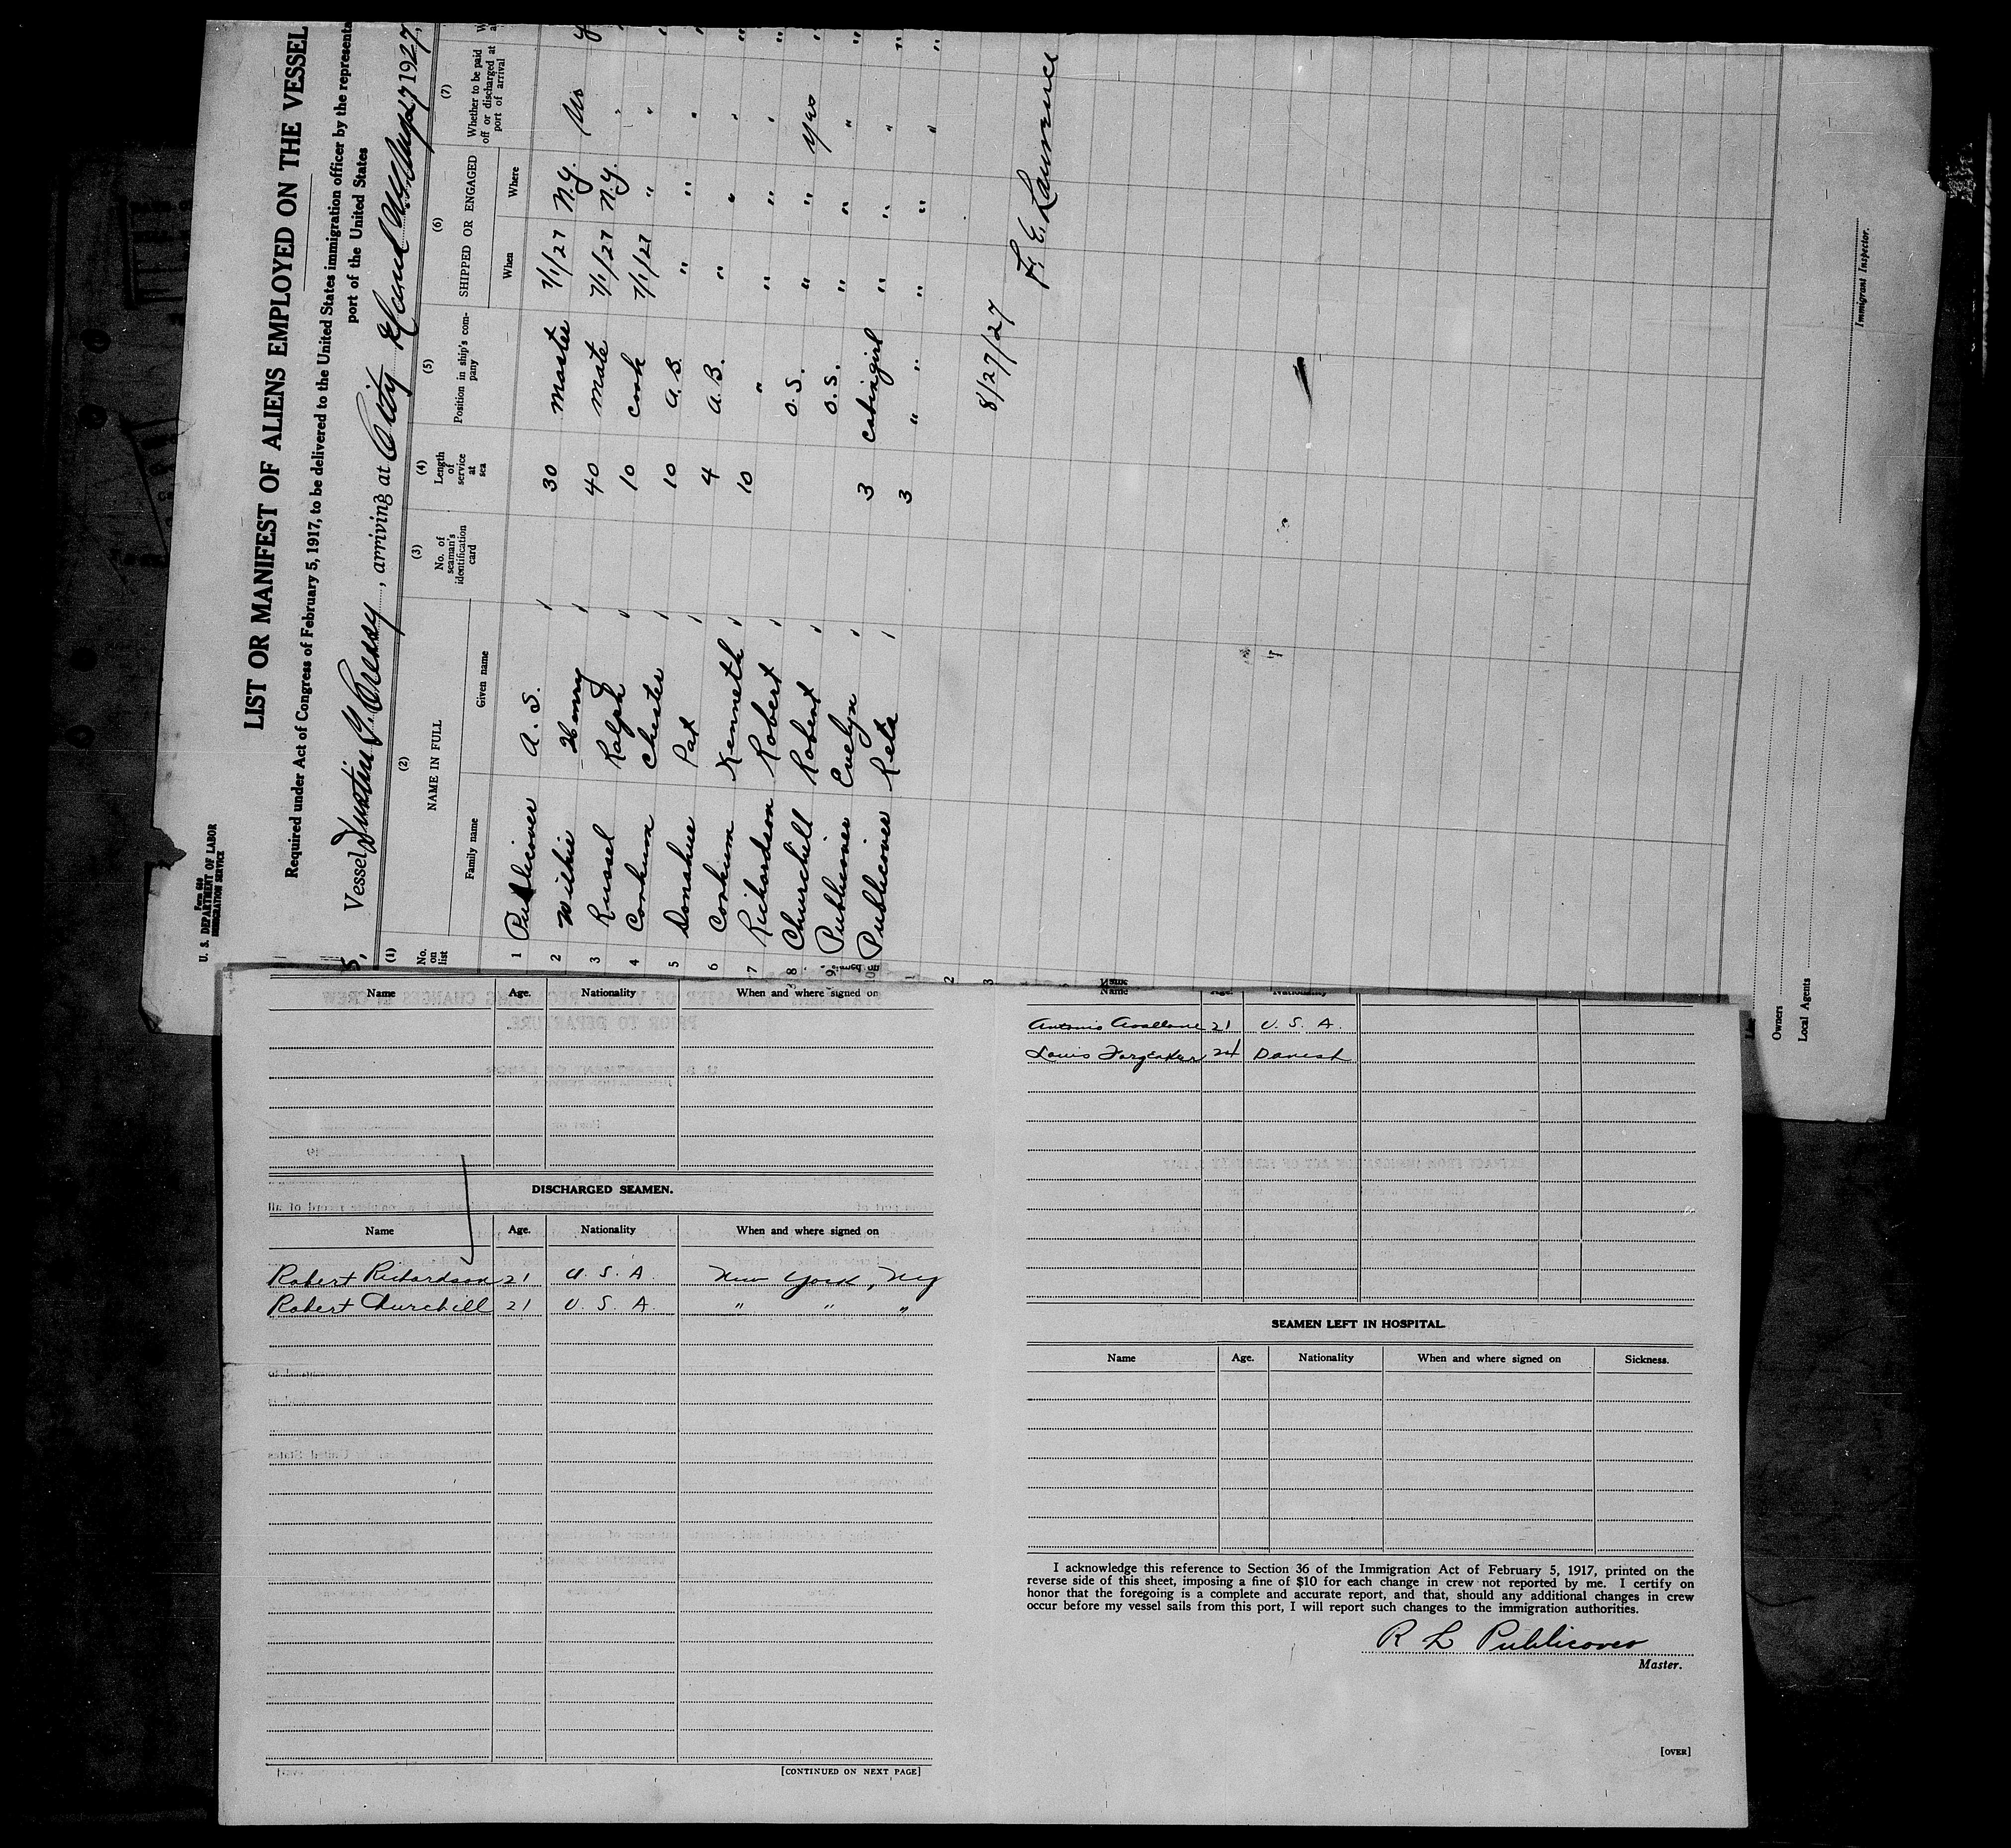 Form 680
U. S. DEPARTMENT OF LABOR
IMMIGRATION SERVICE
LIST OR MANIFEST OF ALIENS EMPLOYED ON THE VESSEL
Required under Act of Congress of February 5, 1917, to be delivered to the United States immigration officer by the represent
port of the United States
Vessel , arriving at City Island 27, 1927,
(1) (2) (3) (4) (5) (6) (7)
No. on list NAME IN FULL No. of seaman's identification card Length of service at sea Position in ship's company SHIPPED OR ENGAGED Whether to be paid off or discharged at port of arrival
Family name Given name When Where
1 Publicover A. S. 30 Master 7/1/27 N.Y. No
2 Wilkie Henry 40 Mate 7/1/27 N.Y. "
3 Russel Ralph 10 Cook 7/1/27 " "
4 Corkum Chester 10 A.B. " " "
5 Donahue Pat 4 A.B. " " "
6 Corkum Kenneth 10 " " " "
7 Richardson Robert O.S. " " Yes
8 Churchill Robert O.S. " " "
9 Publicover Evelyn 3 Cabingirl " " "
10 Publicover Reta 3 " " " "
1
2
3
8/27/27 F. E. Lawrence
Immigrant Inspector.
Owners
Local Agents
Name Age. Nationality When and where signed on
DISCHARGED SEAMEN.
Name Age. Nationality When and where signed on
Robert Richardson 21 U. S. A. New York, NY
Robert Churchill 21 U. S. A. " " "
[CONTINUED ON NEXT PAGE]
Name Age. Nationality
Antonio 21 U. S. A.
Louis 24 Danish
SEAMEN LEFT IN HOSPITAL.
Name Age. Nationality When and where signed on Sickness.
I acknowledge this reference to Section 36 of the Immigration Act of February 5, 1917, printed on the
reverse side of this sheet, imposing a fine of $10 for each change in crew not reported by me. I certify on
honor that the foregoing is a complete and accurate report, and that, should any additional changes in crew
occur before my vessel sails from this port, I will report such changes to the immigration authorities.
R L Publicover
Master.
[OVER]